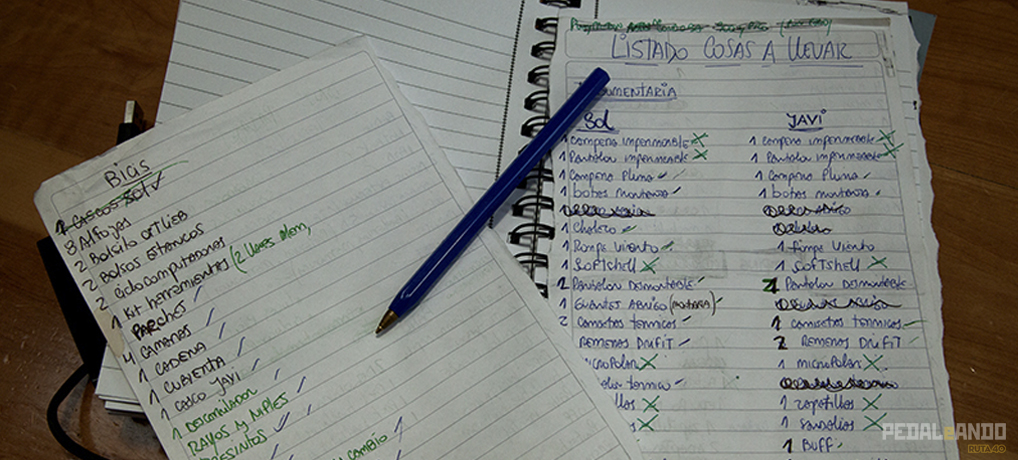 Bicis
1 CASCOS SOL ✓
3 Alforjas
2 Bolsito ORTLIEB
2 Bolsos ESTANCOS
2 Ciclocomputadores
1 Kit herramientas (2 llaves
PARCHES
4 CAMARAS
1 CADENA
1 CUBIERTA
1 CASCO JAVI
1 DESCARRILADOR
RAYOS Y NIPLES
PRESINTOS
CAMBIO
LISTADO COSAS A LLEVAR
UMENTARIA
Sol
1 Campera impermeable
1 Pantalon impermeable
1 Campera Pluma
1 botas montaña
1 Chaleco
1 Rompe Viento
1 SOFTShell
2 Pantalon Desmontable
1 GUANTES ABRIGO
2 Camisetas termicas
REMERAS DRIFIT
MICROPOLAR
termico
llas
JAVI
1 Campera impermeable
1 Pantalon impermeable
1 Campera Pluma
1 botas montaña
1 Rimpe Viento
1 SOFTShell
2 Pantalon Desmontable
1 camisetas termicas
2 REMERAS DRIFIT
1 MICROPOLAR
1 zapatillas
1 sandalias
1 BUFF
PEDALeANDO
RUTA40